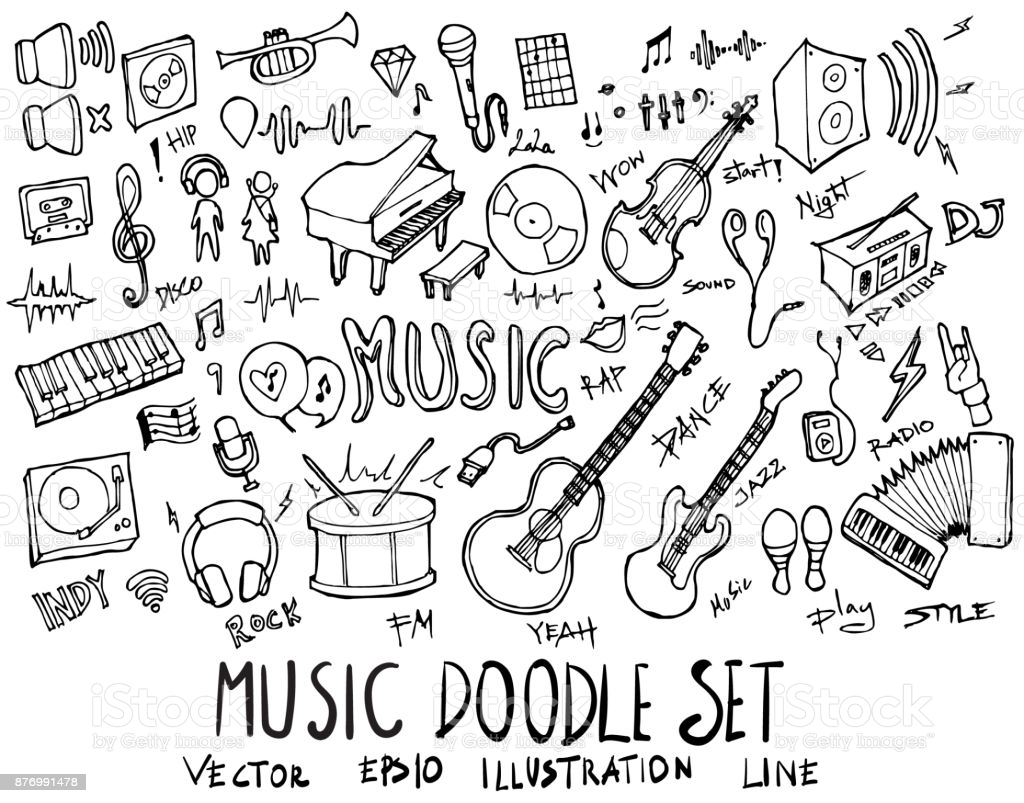 HIP
LaLa
WOW
Start!
Night
DJ
DISCO
SOUND
MUSIC
RAP
DANCE
RADIO
JAZZ
INDY
ROCK
FM
YEAH
Music
Play
STYLE
MUSIC DOODLE SET
VECTOR EPS10 ILLUSTRATION LINE
iStock
by Getty Images
876991478